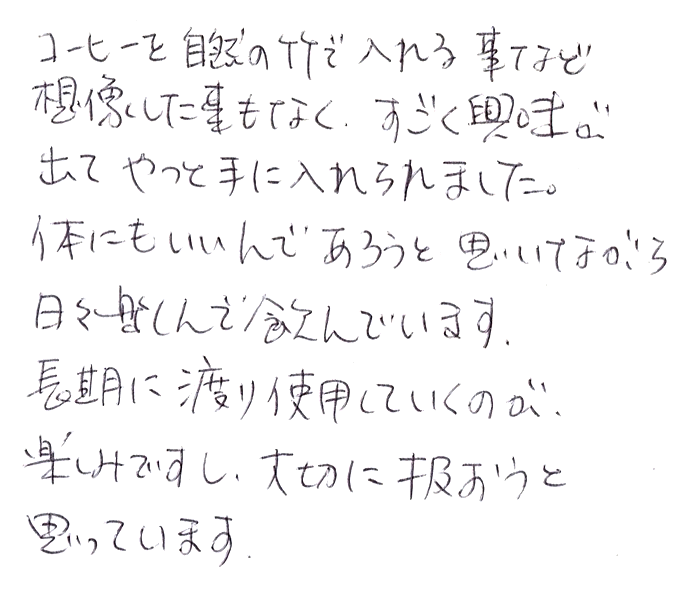 コーヒーを自然の竹で入れる事など
想像した事もなく、すごく興味が
出てやっと手に入れられました。
体にもいいんであろうと思いながら
日々楽しんで飲んでいます。
長期に渡り使用していくのが、
楽しみですし、大切に扱おうと
思っています。